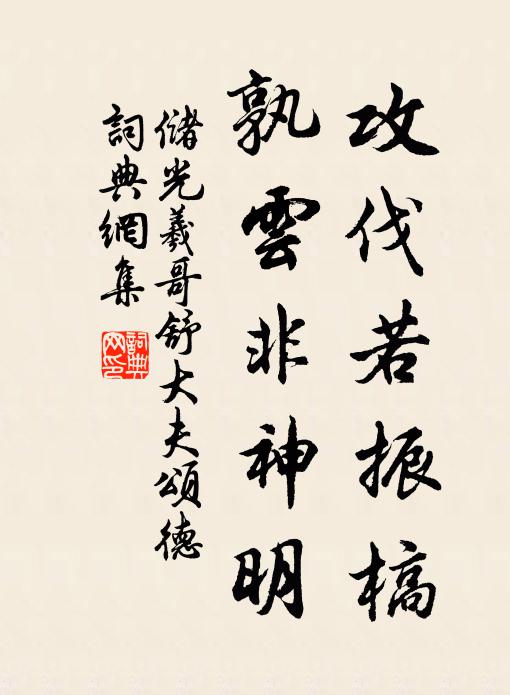 攻伐若振槁
孰雲非神明
儲光羲哥舒大夫頌德
詞典網集
詞典网印